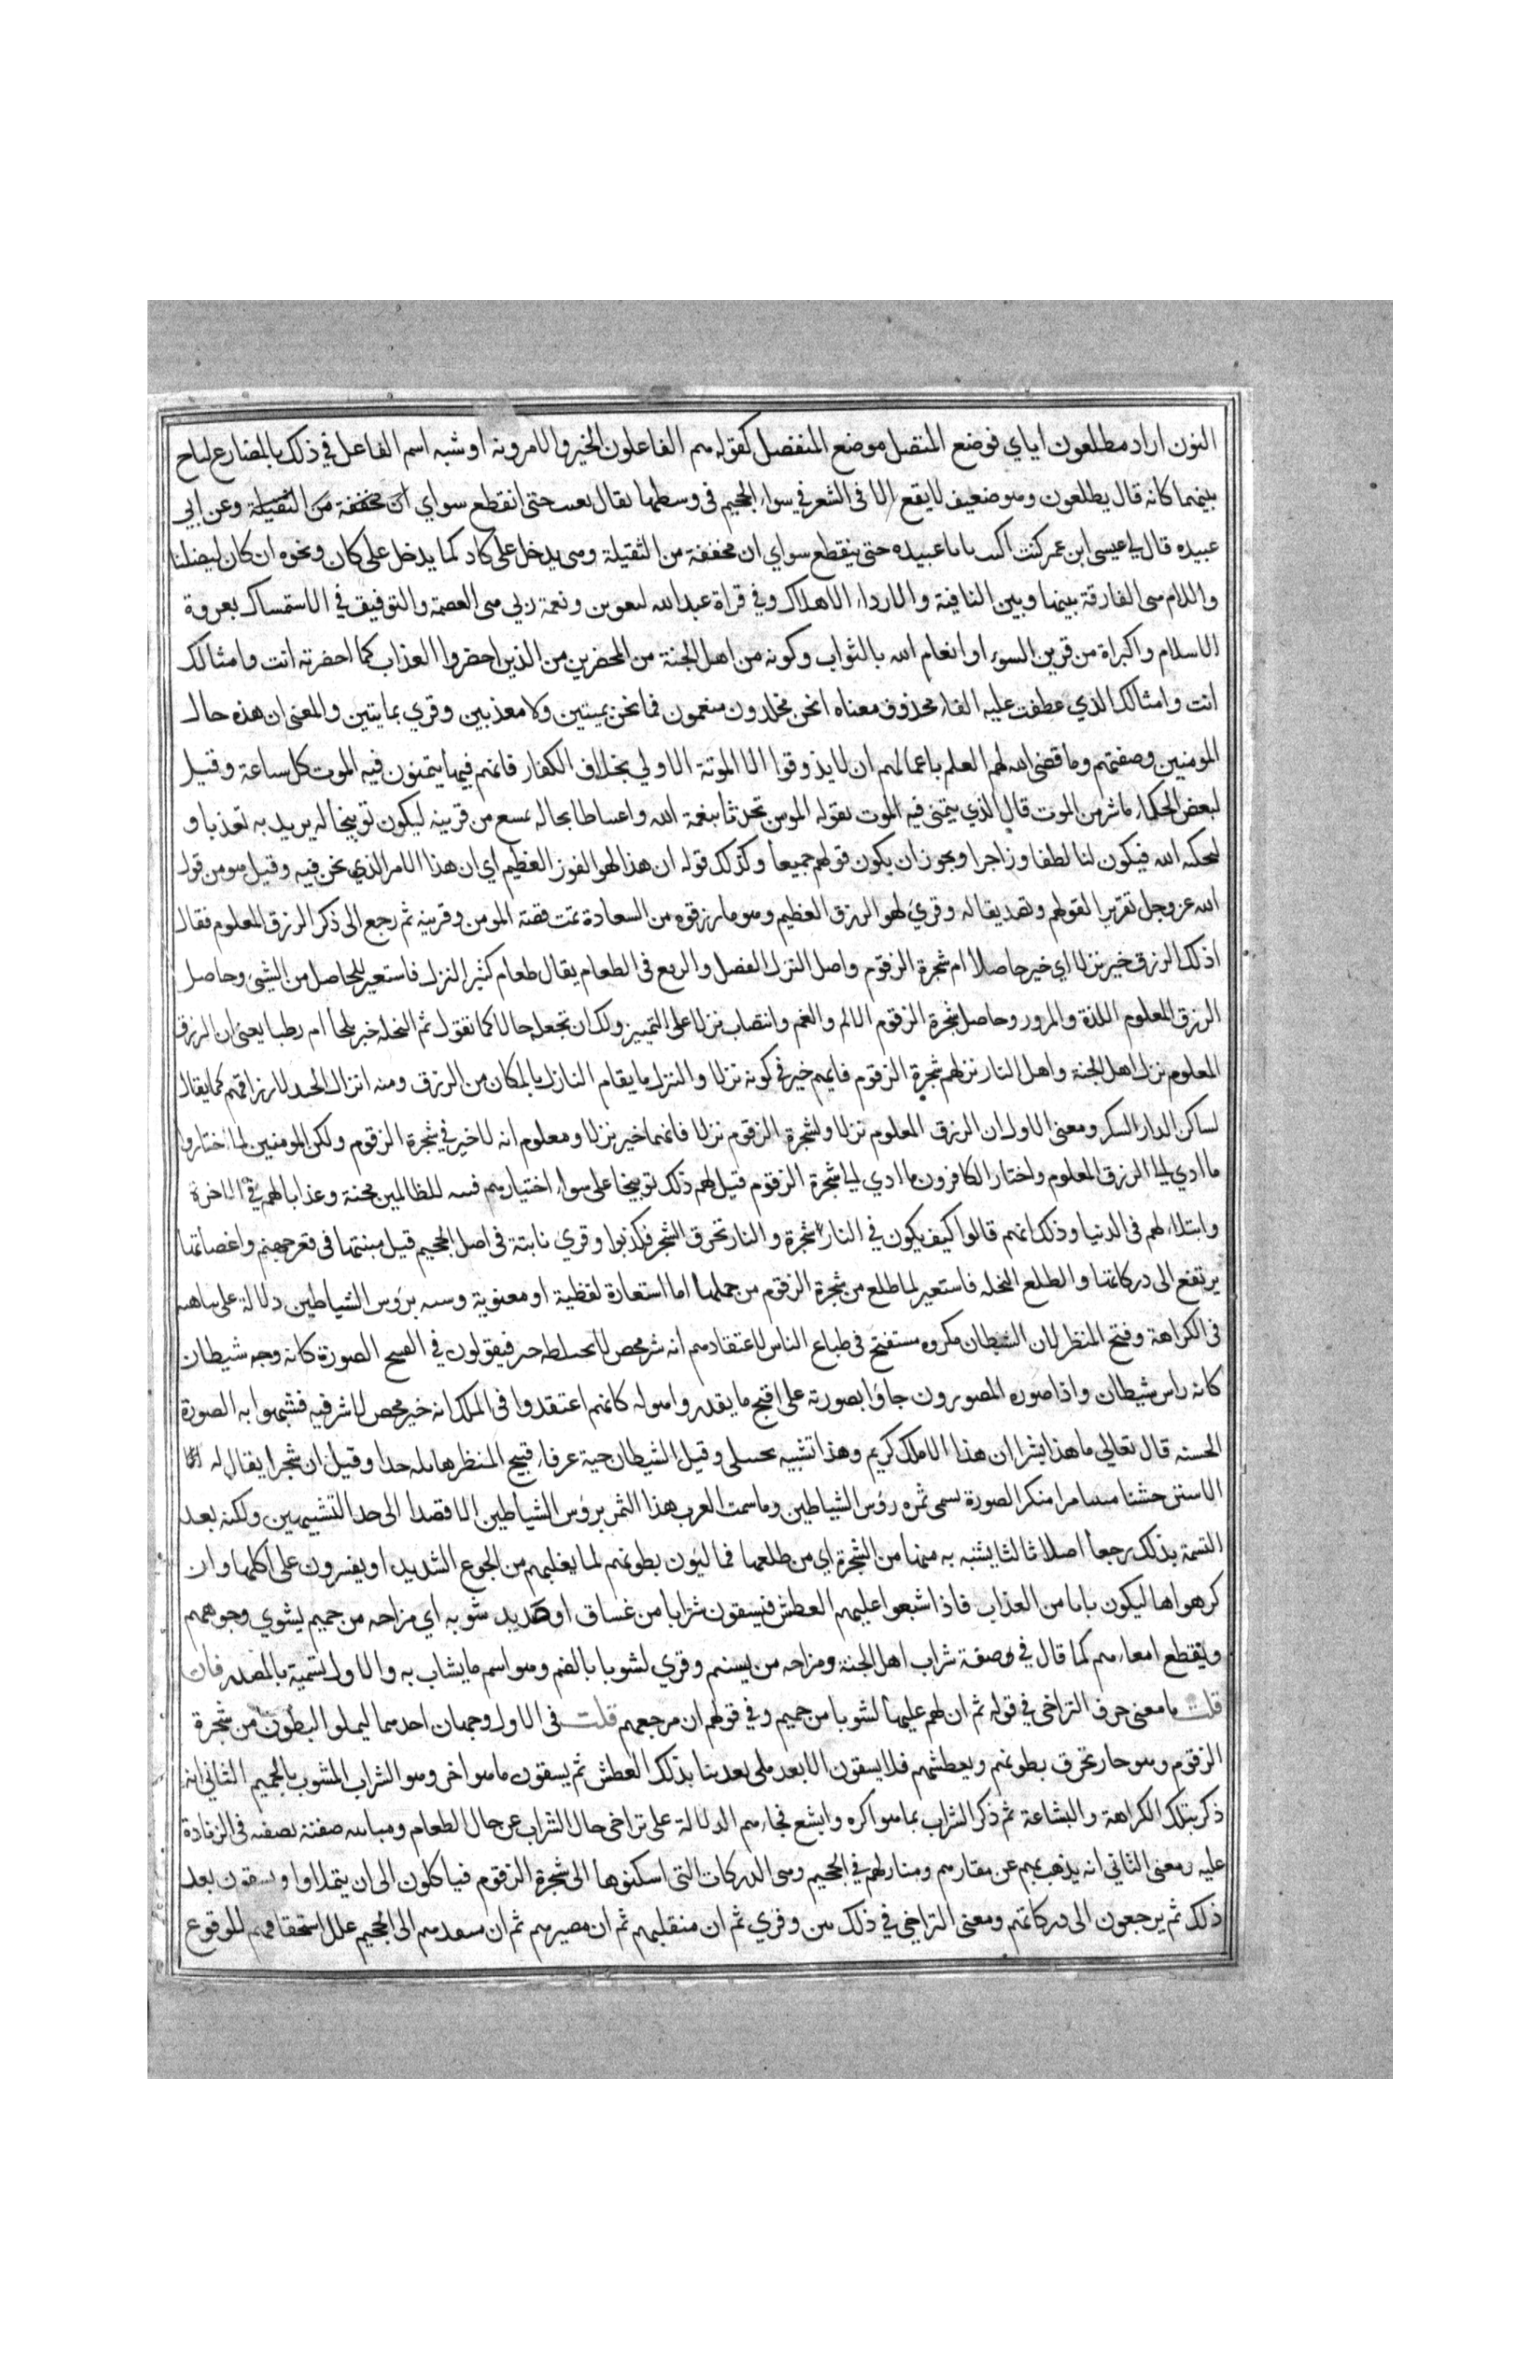 النون اراد مطلعون اياي فوضع المتصل موضع المنفصل كقوله هم الفاعلون الخير والامرونه او شبه اسم الفاعل في ذلك بالمضارع لتاخ
بينهما كانه قال يطلعون وهو ضعيف لا يقع الا في الشعر في سواء الجحيم في وسطها يقال تعبت حتى انقطع سواي ان مخففة من الثقيلة وعن ابي
عبيده قال لي عيسى ابن عمر كنت اكتب يابا عبيده حتى ينقطع سواي ان مخففة من الثقيلة وهي يدخل على كاد كما يدخل على كان ونحوه ان كان ليضلنا
واللام هي الفارقة بينها وبين النافية والارداء الاهلاك وفي قراة عبد الله لتغوين ونعمة ربي هي العصمة والتوفيق في الاستمساك بعروة
الاسلام واكبراة من قرين السوء او انعام الله بالثواب وكونه من اهل الجنة من المحضرين من الذين احضروا العذاب كما احضرته انت وامثالك
انت وامثالك الذي عطفت عليه الفاء محذوف معناه انحن مخلدون منعمون فما نحن بميتين ولا معذبين وقري بمايتين والمعنى ان هذه حال
المومنين وصفتهم وما قضى الله لهم العلم باعمالهم ان لا يذوقوا الا الموتة الاولي بخلاف الكفار فانهم فيما يتمنون فيه الموت كل ساعة وقيل
لبعض الحكماء ما شر من الموت قال الذي يتمنى فيه الموت يقوله المومن تحدثا بنعمة الله واغتباطا بحاله بمسمع من قرينه ليكون توبيخا له يريد به تعذبا و
لحكيه الله فيكون لنا لطفا وزاجرا ويجوز ان يكون قولهم جميعا وكذلك قوله ان هذا لهو الفوز العظيم اي ان هذا الامر الذي نحن فيه وقيل هو من قول
الله عز وجل تقريرا لقولهم وتصديقا له وقري لهو الرزق العظيم وهو ما رزقوه من السعادة تمت قصة المومن وقرينه ثم رجع الى ذكر الرزق المعلوم فقال
اذلك الرزق خير نزلا اي خير حاصلا ام شجرة الزقوم واصل النزل الفضل والريع في الطعام يقال طعام كثير النزل فاستعير للحاصل من الشيئ وحاصل
الرزق المعلوم اللذة والسرور وحاصل شجرة الزقوم الالم والغم وانتصاب نزلا على التمييز ولك ان تجعله حالا كما تقول ثم النخلة خير بلحا ام رطبا يعني ان الرزق
المعلوم نزل اهل الجنة واهل النار نزلهم شجرة الزقوم فايهم خير في كونه نزلا والنزل ما يقام النازل بالمكان من الرزق ومنه انزال الجند لارزاقهم كما يقال
لساكن الدار السكن ومعنى الاول ان الرزق المعلوم نزلا ولشجرة الزقوم نزلا فانهما خير نزلا ومعلوم انه لا خير في شجرة الزقوم ولكن المومنين لما اختاروا
ما ادي الى الرزق المعلوم واختار الكافرون ما ادي الى شجرة الزقوم قيل لهم ذلك توبيخا على سوء اختيارهم فتنة للظالمين محنة وعذابا لهم في الاخرة
وابتلاء لهم في الدنيا وذلك انهم قالوا كيف يكون في النار شجرة والنار تحرق الشجر فكذبوا وقري نابتة في اصل الجحيم قيل منبتها في قعر جهنم واغصانها
يرتفع الى دركاتها والطلع النخله فاستعير لما طلع من شجرة الزقوم من حملها اما استعارة لفظية او معنوية وشبه برؤس الشياطين دلالة على تناهيه
في الكراهة وقبح المنظر لان الشيطان مكروه مستقبح في طباع الناس لاعتقادهم انه شر محض لا يخلطه خير فيقولون في القبيح الصورة كانه وجه شيطان
كانه راس شيطان واذا صوره المصورون جاؤا بصورته على اقبح ما يقدر واهوله كانهم اعتقدوا في الملك انه خير محض لا شر فيه فشبهوا به الصورة
الحسنه قال تعالي ما هذا بشرا ان هذا الا ملك كريم وهذا تشبيه تخييلي وقيل الشيطان حية عرفاء قبيح المنظر هايله جدا وقيل ان شجرا يقال له
الاستن خشنا منتنا مرا منكر الصورة يسمى ثمره رؤس الشياطين وما سمت العرب هذا الثمر برؤس الشياطين الا قصدا الى حد التشبيهين ولكنه بعد
التسمة بذلك رجعا اصلا ثالثا يشبه به منها من الشجرة اي من طلعها فماليون بطونهم لما يغلبهم من الجوع الشديد او يقسرون على اكلها وان
كرهواها ليكون بابا من العذاب فاذا شبعوا عليهم العطش فيسقون شرابا من غساق او صديد شوبه اي مزاجه من حميم يشوي وجوههم
ويقطع امعاءهم كما قال في صفة شراب اهل الجنة ومزاجه من تسنيم وقري لشوبا بالضم وهو اسم ما يشاب به والاول تسمية بالمصدر فان
قلت ما معنى حرف التراخي في قوله ثم ان لهم عليها لشوبا من حميم وفي قولهم ان مرجعهم قلت في الاول وجهان احدهما ليملو البطون من شجرة
الزقوم وهو حار تحرق بطونهم ويعطشهم فلا يسقون الا بعد ملي بعدنا بذلك العطش ثم يسقون ما هو اخر وهو الشراب المشوب بالحميم الثاني انه
ذكر بتلك الكراهة والبشاعة ثم ذكر الشراب بما هو اكره وابشع فجاء بهم الدلالة على تراخى حال الشراب عن حال الطعام ومباينه صفته لصفته في الزيادة
عليه ومعنى الثاني انه يذهب بهم عن مقارهم ومنازلهم في الجحيم وهي الدركات التي اسكنوها الى شجرة الزقوم فياكلون الى ان يتملاوا ويسقون بعد
ذلك ثم يرجعون الى دركاتهم ومعنى التراخي في ذلك بين وقري ثم ان منقلبهم ثم ان مصيرهم ثم ان منفدهم الى الجحيم علل استحقاقهم للوقوع